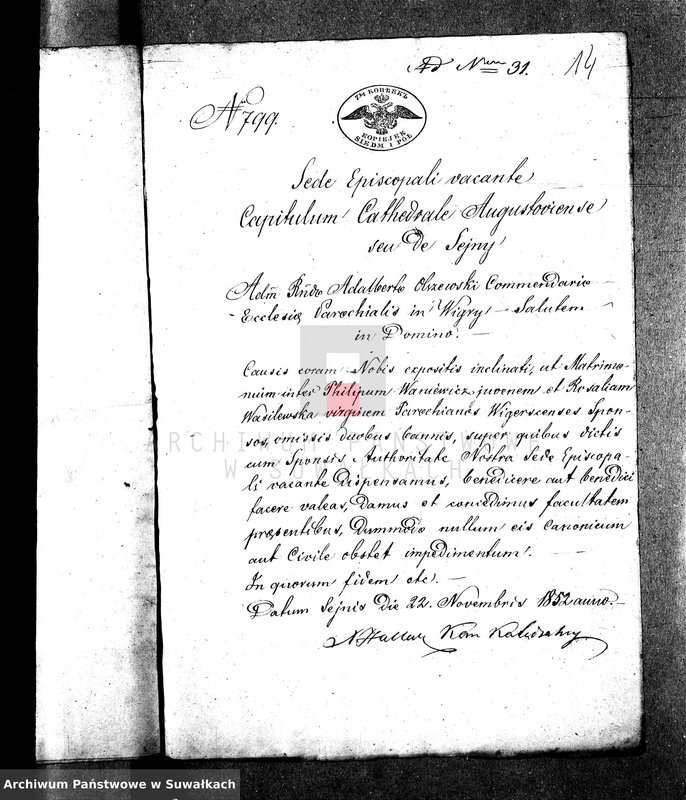 Ad Num 31. 14
N 799.
7½ КОПѢЕКЪ
KOPIEJEK
SIEDM I PÓŁ
Sede Episcopali vacante
Capitulum Cathedrale Augustoviense
seu de Sejny
Adm Rndo Adalberto Olszewski Commendario
Ecclesiæ Parochialis in Wigry Salutem
in Domino. —
Causis coram Nobis expositis inclinati, ut Matrimo-
nium inter Philipum Waniewicz juvenem et Rosaliam
Wasilewska virginem Parochianos Wigerscenses Spon-
sos, omissis duobus bannis, super quibus dictis
cum Sponsis Authoritate Nostra Sede Episcopa-
li vacante Dispensamus, benedicere aut benedici
facere valeas, Damus et concedimus facultatem
præsentibus, Dummodo nullum eis canonicum
aut Civile obstet impedimentum. —
In quorum fidem etc. —
Datum Sejnis die 22. Novembris 1852 anno. —
ARCHIWUM PAŃSTWOWE
W SUWAŁKACH
Archiwum Państwowe w Suwałkach